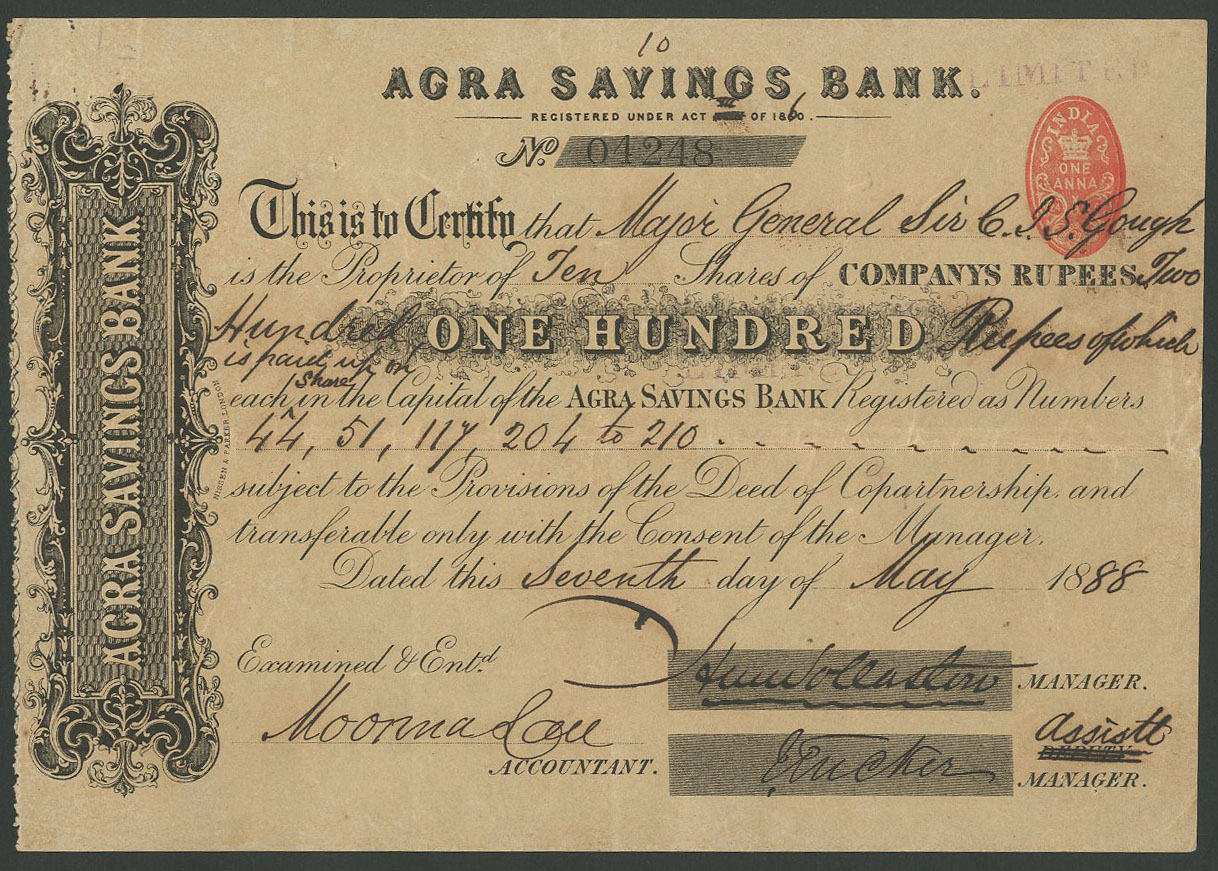 10
AGRA SAVINGS BANK. LIMITED
REGISTERED UNDER ACT III OF 1866.
No. 04248
INDIA
ONE
ANNA
This is to Certify that Major General Sir C. J. S. Gough
is the Proprietor of Ten Shares of COMPANYS RUPEES Two
Hundred, ONE HUNDRED Rupees of which
is paid up on
Share
each in the Capital of the AGRA SAVINGS BANK Registered as Numbers
44, 51, 117, 204 to 210.
subject to the Provisions of the Deed of Copartnership, and
transferable only with the Consent of the Manager.
Dated this Seventh day of May 1888
Examined & Entd.
MANAGER.
Moonna Lall
ACCOUNTANT.
Tucker
Assistt
DEPUTY
MANAGER.
AGRA SAVINGS BANK
NISSEN & PARKER LONDON